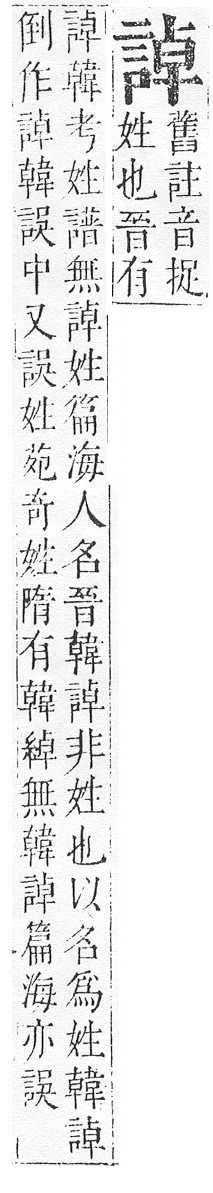 諄
舊註音捉
姓也晉有
諄韓考姓譜無諄姓篇海人名晉韓諄非姓也以名爲姓韓諄
倒作諄韓誤中又誤姓苑奇姓隋有韓綽無韓諄篇海亦誤